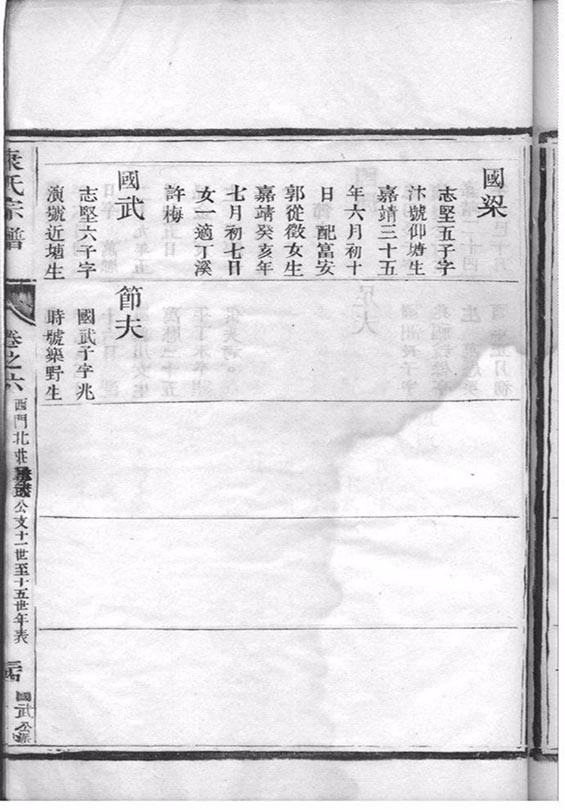 國梁
志堅五子字
汴號仰塘生
嘉靖三十五
年六月初十
日 配富安
郭從徵女生
嘉靖癸亥年
七月初七日
女一適丁溪
許梅
國武
志堅六子字
演號近塘生
節夫
國武子字兆
時號樂野生
氏宗譜
卷之六
西門北莊
公支十一世至十五世年表
國武公